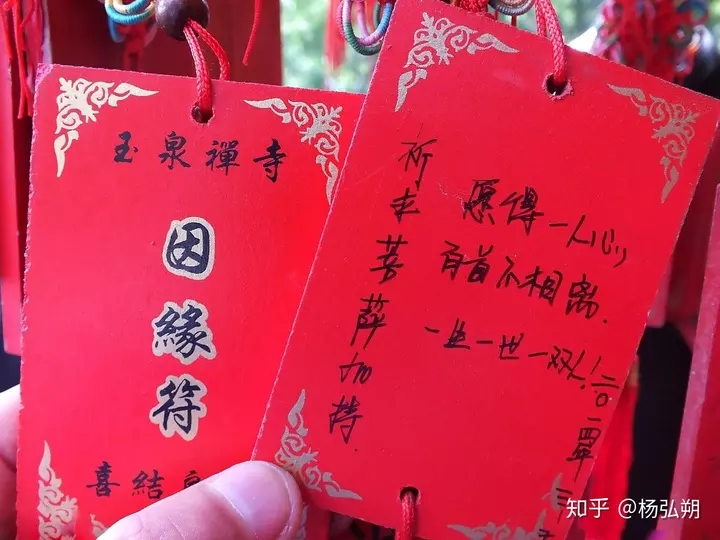 玉泉禪寺
因緣符
喜結
祈求菩萨加持.
愿得一人心,
百首不相离.
一生一世一双人!
二〇一四年
知乎 @杨弘朔